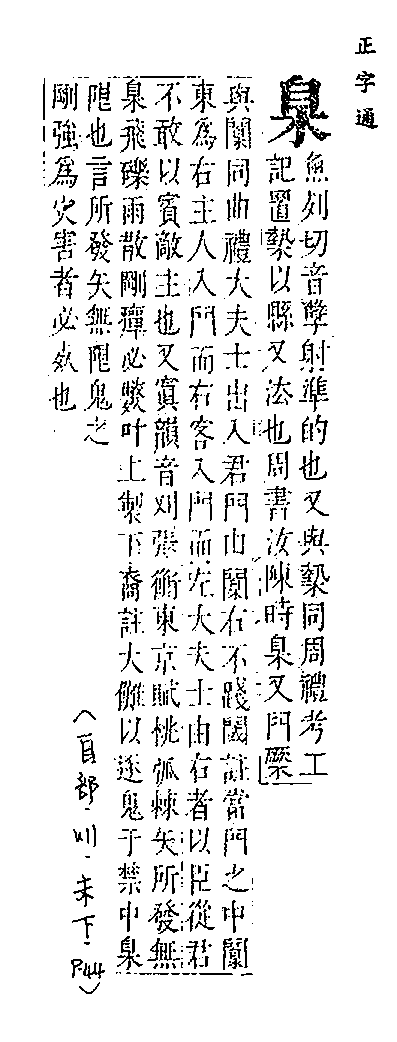 正字通
臬
魚列切音孽射準的也又與槷同周禮考工
記置槷以縣又法也周書汝陳時臬又門橜
與闑同曲禮大夫士出入君門由闑右不踐閾註當門之中闑
東為右主人入門而右客入門而左大夫士由右者以臣從君
不敢以賓敵主也又寘韻音刈張衡東京賦桃弧棘矢所發無
臬飛礫雨散剛癉必斃叶上製下裔註大儺以逐鬼于禁中臬
限也言所發矢無限鬼之
剛強為灾害者必也
(自部.川.未下.P.44)